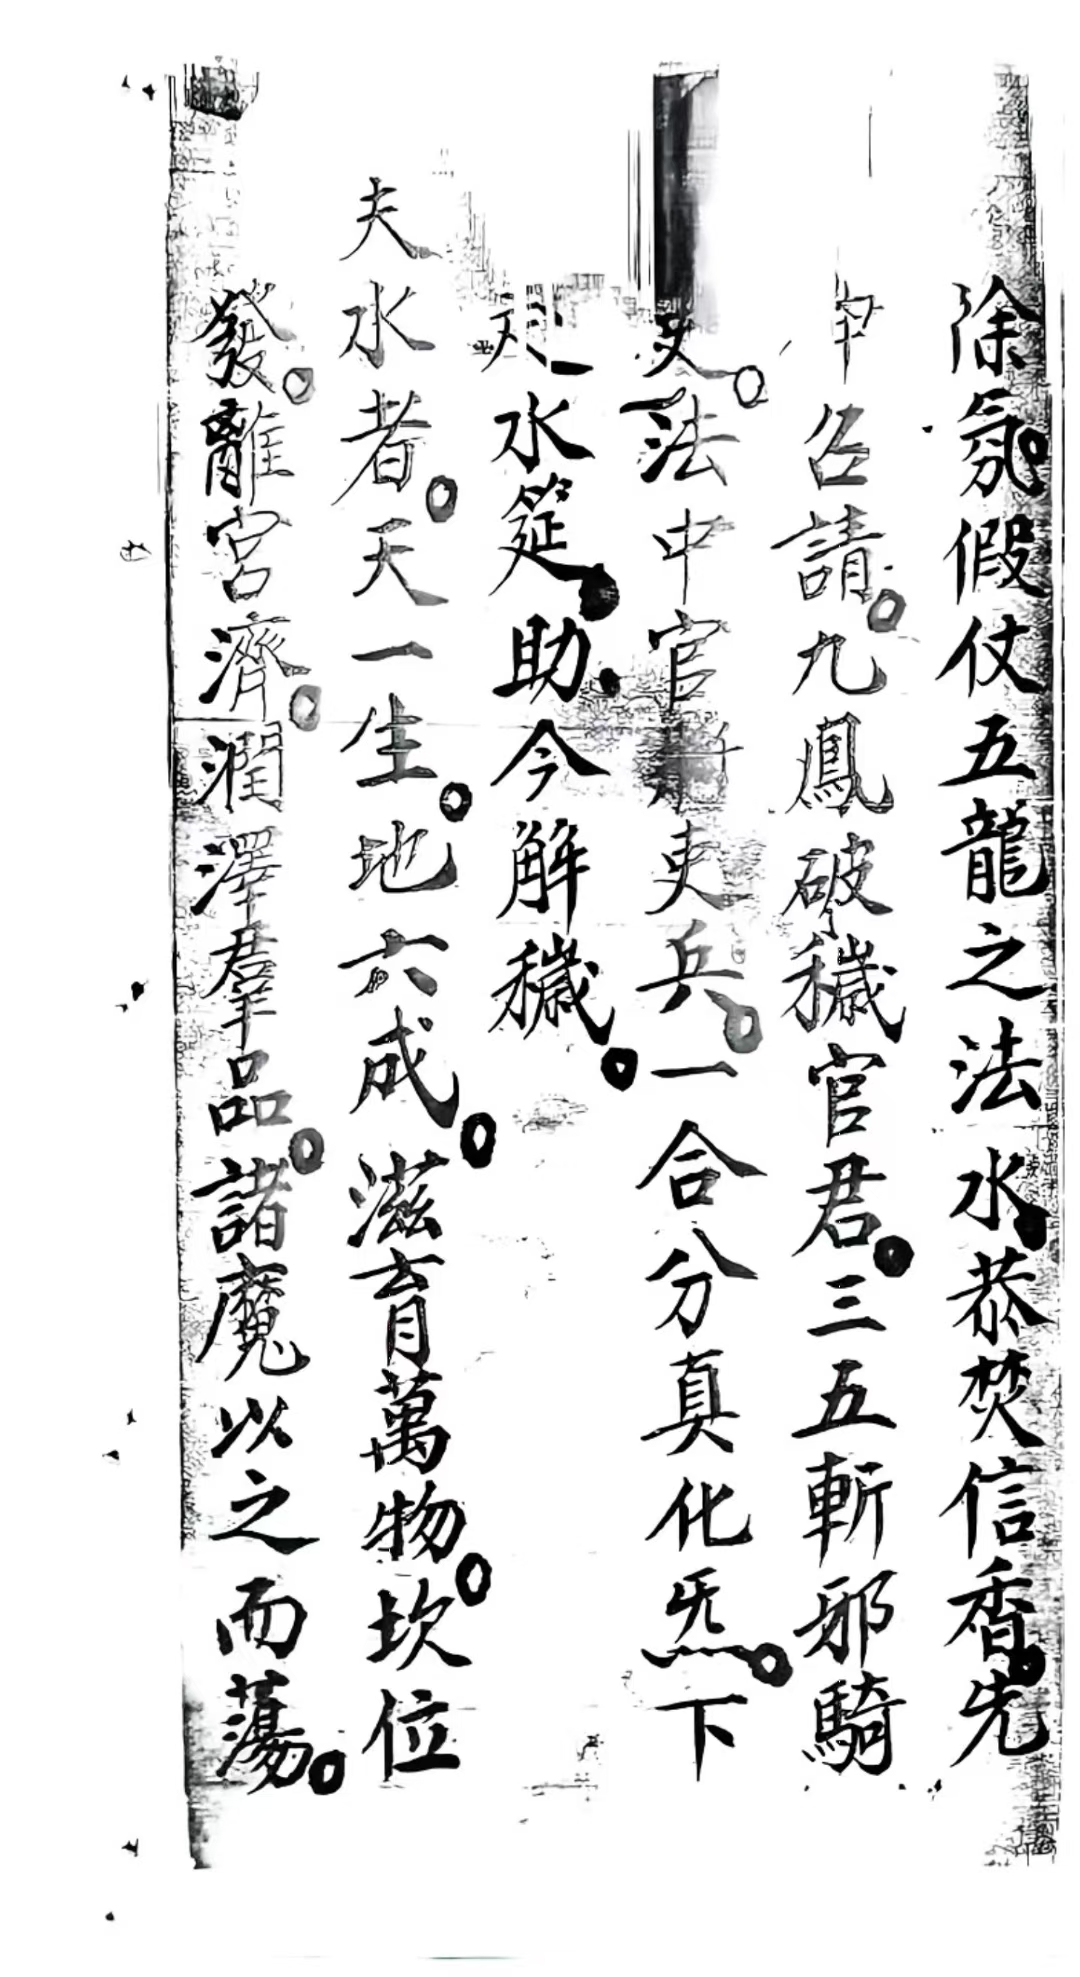 除氛假仗五龍之法水恭焚信香先
申召請九鳳破穢官君三五斬邪騎
吏法中官將吏兵一合分真化炁下
赴水筵助今解穢
夫水者天一生地六成滋育萬物坎位
發離宮濟潤澤羣品諸魔以之而蕩